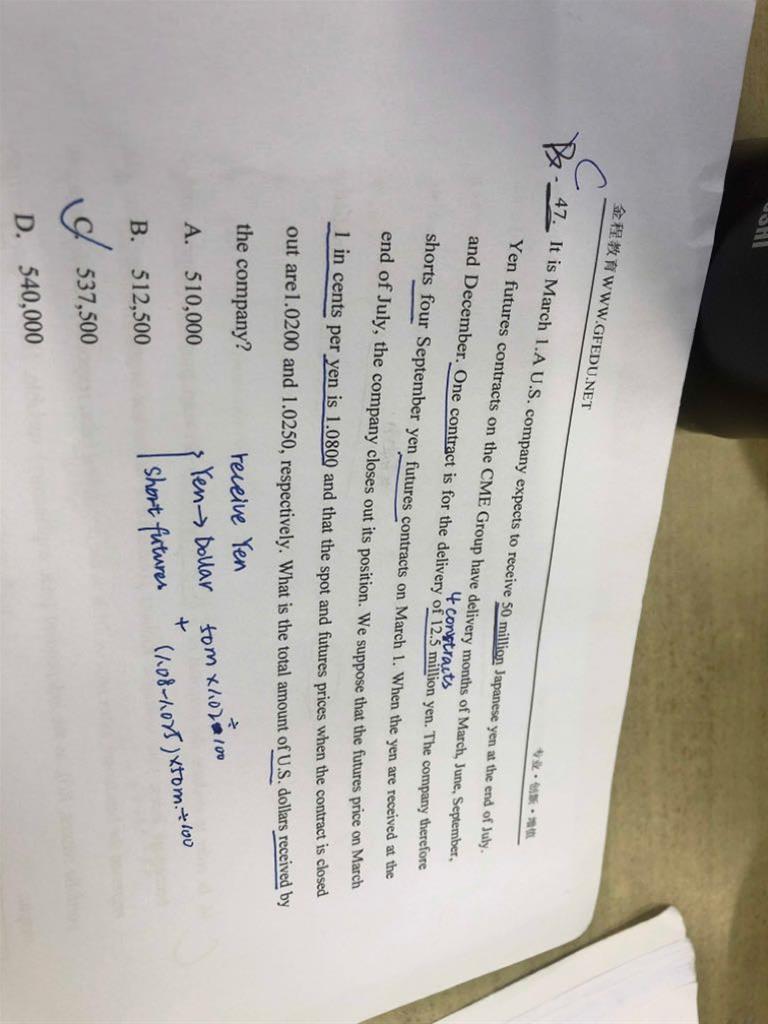 金程教育WWW.GFEDU.NET
专业·创新·增值
C
B - 47. It is March 1.A U.S. company expects to receive 50 million Japanese yen at the end of July.
Yen futures contracts on the CME Group have delivery months of March, June, September,
4 contracts
and December. One contract is for the delivery of 12.5 million yen. The company therefore
shorts four September yen futures contracts on March 1. When the yen are received at the
end of July, the company closes out its position. We suppose that the futures price on March
1 in cents per yen is 1.0800 and that the spot and futures prices when the contract is closed
out are1.0200 and 1.0250, respectively. What is the total amount of U.S. dollars received by
the company?
receive Yen
A. 510,000
Yen→Dollar 50m×1.02÷100
B. 512,500
short futures + (1.08-1.025)×50m.÷100
C. 537,500
D. 540,000